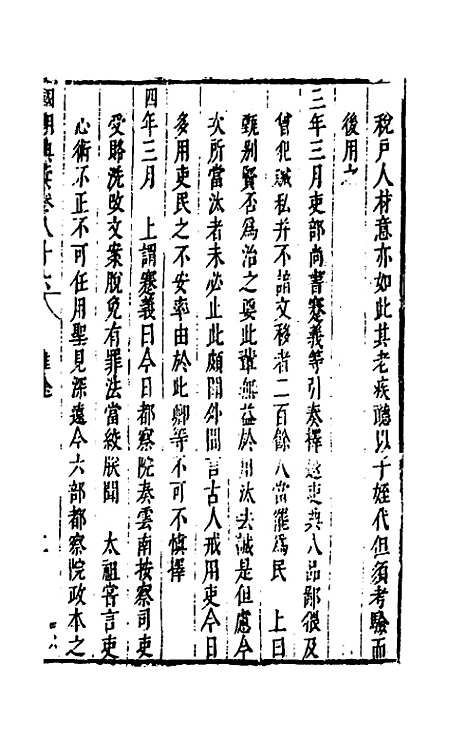 稅戶人材意亦如此其老疾聽以子姪代但須考驗而
後用之
三年三月吏部尚書蹇義等引奏擇選吏典人品鄙猥及
曾犯贓私并不諳文移者二百餘人當罷爲民　上曰
甄别賢否爲治之要此輩無益於用汰去誠是但慮今
次所當汰者未必止此頗聞外間言古人戒用吏今日
多用吏民之不安率由於此卿等不可不慎擇
四年三月　上謂蹇義曰今日都察院奏雲南按察司吏
受賂洗改文案脫免有罪法當絞朕聞　太祖嘗言吏
心術不正不可任用聖見深遠今六部都察院政本之
國朝典彙卷八十六